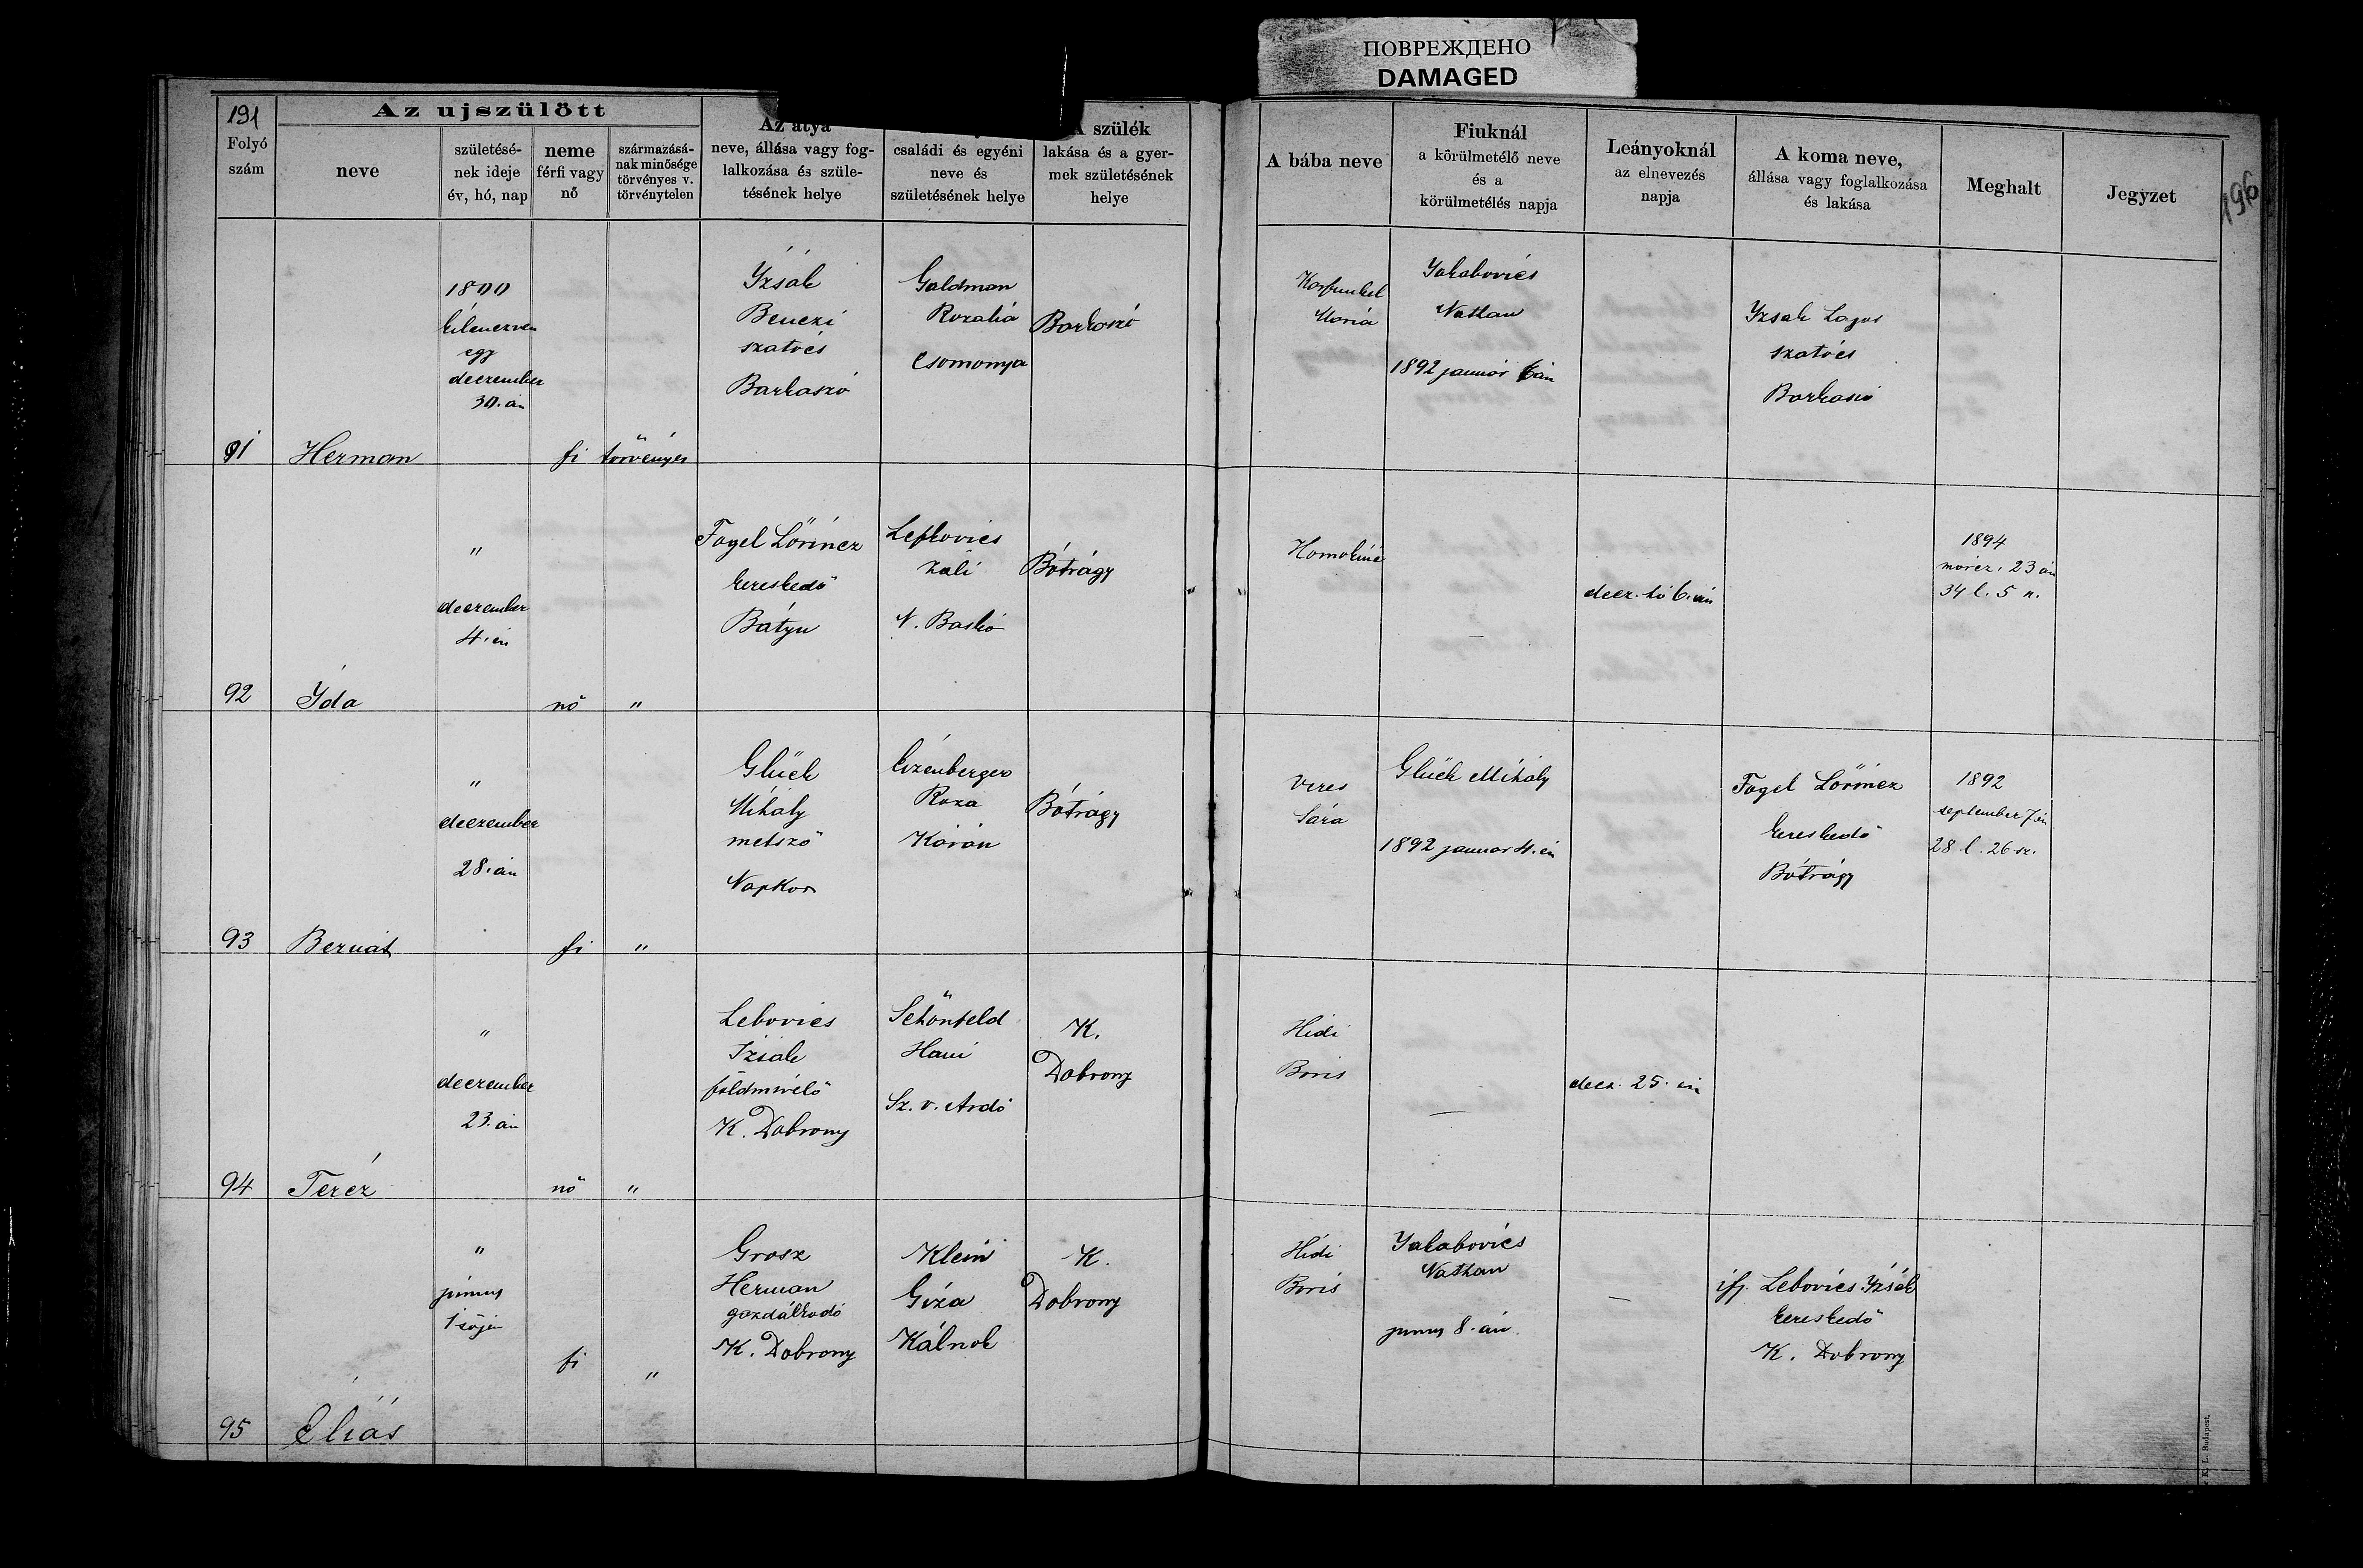 ПОВРЕЖДЕНО
DAMAGED
191
196
Az ujszülött
Folyó szám
neve
születésé-
nek ideje
év, hó, nap
neme
férfi vagy
nő
származásá-
nak minősége
törvényes v.
törvénytelen
Az atya
neve, állása vagy fog-
lalkozása és szüle-
tésének helye
családi és egyéni
neve és
születésének helye
A szülék
lakása és a gyer-
mek születésének
helye
A bába neve
Fiuknál
a körülmetélő neve
és a
körülmetélés napja
Leányoknál
az elnevezés
napja
A koma neve,
állása vagy foglalkozása
és lakása
Meghalt
Jegyzet
91
Herman
1800
kilenczven
egy
deczember
30. án
fi
törvényes
Yzsák
Benczi
szatócs
Barkaszó
Goldman
Rozália
Csomonya
Barkaszó
Karfunkel
Mária
Yakabovics
Nathan
1892 január 6 án
Yzsak Lajos
szatócs
Barkaszó
92
Yda
"
deczember
4. én
nő
"
Fogel Lőrincz
kereskedő
Bátyu
Lefkovics
Záli
N. Baskó
Bótrágy
Homokiné
—
decz. hó 6. án
1894
márcz. 23 án
34 l. 5 n.
93
Bernát
"
deczember
28. án
fi
"
Glück
Mihály
metsző
Napkor
Eizenberger
Roza
Bótrágy
Veres
Sára
Glück Mihály
1892 januar 4. én
Fogel Lőrincz
kereskedő
Bótrágy
1892
september 7. én
28 l. 26 sz.
94
Teréz
"
deczember
23. án
nő
"
Lebovics
Izsák
földmivelő
K. Dobrony
Schönfeld
Hani
Sz. v. Ardó
K.
Dobrony
Hidi
Boris
—
decz. 25. én
95
Éliás
"
junius
1 sőjén
fi
"
Grosz
Herman
gazdálkodó
K. Dobrony
Klein
Giza
Kálnok
K.
Dobrony
Hidi
Boris
Yakabovics
Nathan
junius 8. án.
—
ifj. Lebovics Yzsák
kereskedő
K. Dobrony
K. L. Budapest.